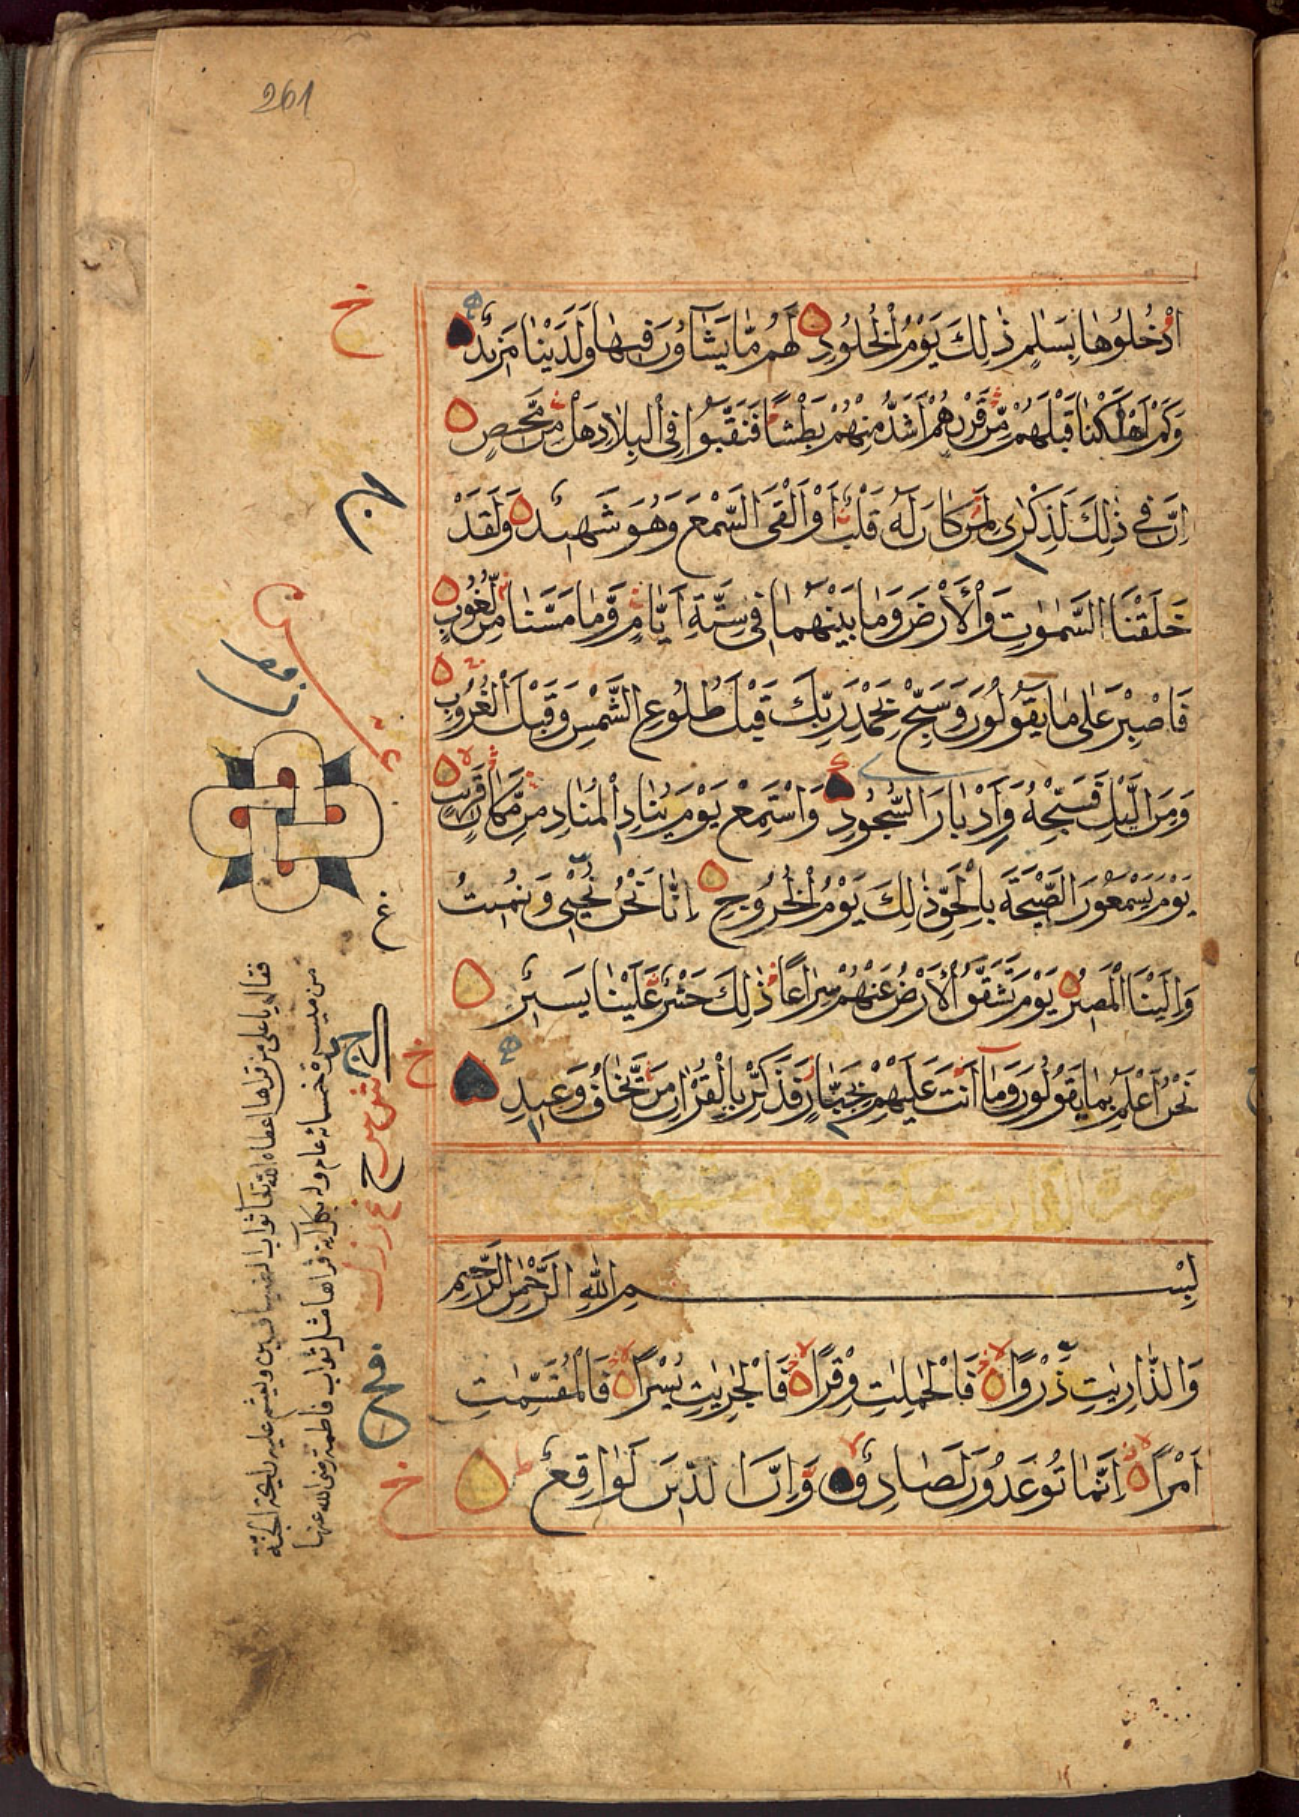 261
ادْخُلُوهَا بِسَلٰمٍ ذٰلِكَ يَوْمُ الْخُلُودِ لَهُم مَّا يَشَآؤُنَ فِيهَا وَلَدَيْنَا مَزِيدٌ
وَكَمْ اَهْلَكْنَا قَبْلَهُمْ مِّن قَرْنٍ هُمْ اَشَدُّ مِنْهُمْ بَطْشًا فَنَقَّبُوا فِى الْبِلَادِ هَلْ مِن مَّحِيصٍ
اِنَّ فِى ذٰلِكَ لَذِكْرٰى لِمَن كَانَ لَهُ قَلْبٌ اَوْ اَلْقَى السَّمْعَ وَهُوَ شَهِيدٌ وَلَقَدْ
خَلَقْنَا السَّمٰوٰتِ وَالْاَرْضَ وَمَا بَيْنَهُمَا فِى سِتَّةِ اَيَّامٍ وَّمَا مَسَّنَا مِن لُّغُوبٍ
فَاصْبِرْ عَلٰى مَا يَقُولُونَ وَسَبِّحْ بِحَمْدِ رَبِّكَ قَبْلَ طُلُوعِ الشَّمْسِ وَقَبْلَ الْغُرُوبِ
وَمِنَ الَّيْلِ فَسَبِّحْهُ وَاِدْبَارَ السُّجُودِ وَاسْتَمِعْ يَوْمَ يُنَادِ الْمُنَادِ مِن مَّكَانٍ قَرِيبٍ
يَوْمَ يَسْمَعُونَ الصَّيْحَةَ بِالْحَقِّ ذٰلِكَ يَوْمُ الْخُرُوجِ اِنَّا نَحْنُ نُحْيِى وَنُمِيتُ
وَاِلَيْنَا الْمَصِيرُ يَوْمَ تَشَقَّقُ الْاَرْضُ عَنْهُمْ سِرَاعًا ذٰلِكَ حَشْرٌ عَلَيْنَا يَسِيرٌ
نَحْنُ اَعْلَمُ بِمَا يَقُولُونَ وَمَا اَنْتَ عَلَيْهِمْ بِجَبَّارٍ فَذَكِّرْ بِالْقُرْاٰنِ مَن يَّخَافُ وَعِيدِ
بِسْمِ اللّٰهِ الرَّحْمٰنِ الرَّحِيمِ
وَالذّٰرِيٰتِ ذَرْوًا فَالْحٰمِلٰتِ وِقْرًا فَالْجٰرِيٰتِ يُسْرًا فَالْمُقَسِّمٰتِ
اَمْرًا اِنَّمَا تُوعَدُونَ لَصَادِقٌ وَاِنَّ الدِّينَ لَوَاقِعٌ
فقال يا على من قراها اعطاه الله تعا ثواب
من مسيرة خمسمائة عام وله بكل اية قراها مثل ثواب فاطمة رضى الله عنها